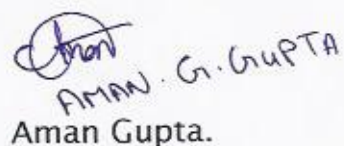 Aman
AMAN. G. GUPTA
Aman Gupta.